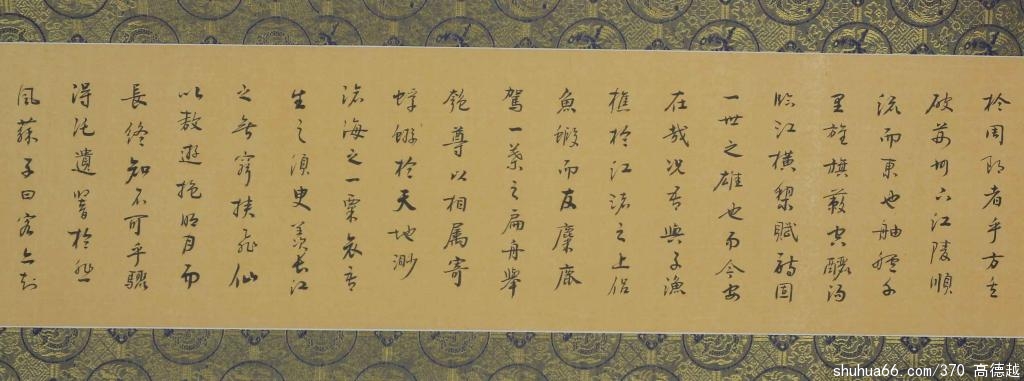 於周郎者乎方其
破荊州下江陵順
流而東也舳艫千
里旌旗蔽空釃酒
臨江橫槊賦詩固
一世之雄也而今安
在哉况吾與子漁
樵於江渚之上侶
魚蝦而友麋鹿
駕一葉之扁舟舉
匏尊以相屬寄
蜉蝣於天地渺
滄海之一粟哀吾
生之須臾羨長江
之無窮挾飛仙
以遨遊抱明月而
長終知不可乎驟
得託遺響於悲
風蘇子曰客亦知
shuhua66.com/370 高德越